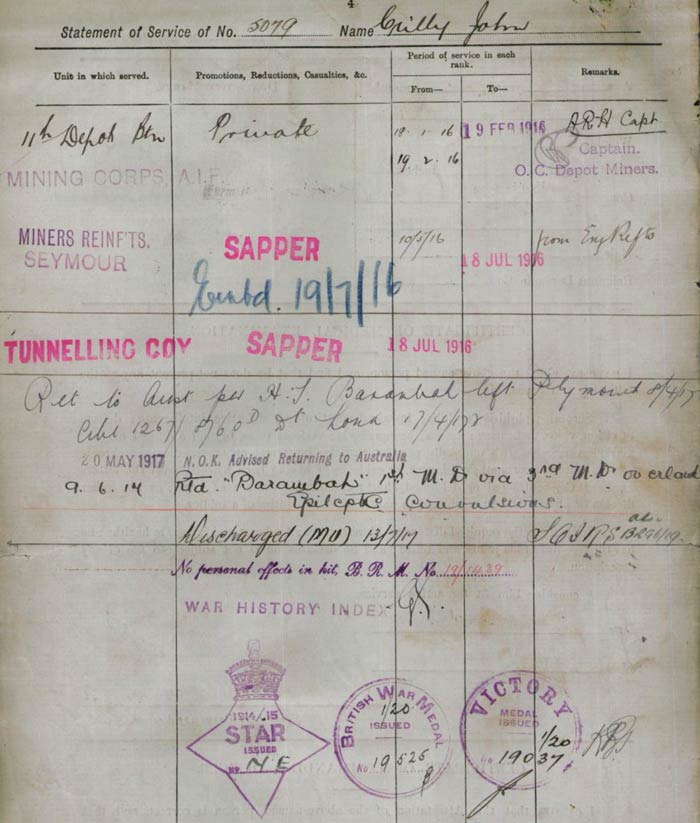 4
Statement of Service of No. 5079 Name Crilly John
Unit in which served. Promotions, Reductions, Casualties, &c. Period of service in each rank. Remarks.
From— To—
11th Depot Btn Private 19 . 1 . 16 19 FEB 1916 A.R.H Capt
19 . 2 . 16 Captain.
MINING CORPS, A.I.F. O.C. Depot Miners.
MINERS REINF'TS. SAPPER 10/5/16 from Eng Refts
SEYMOUR 18 JUL 1916
Embd. 19/7/16
TUNNELLING COY SAPPER 18 JUL 1916
Ret to Aust per H.S. Barambah left Plymouth 8/4/17
20 MAY 1917 N.O.K. Advised Returning to Australia
Rtd. "Barambah" 1st M.D via 3rd M.D overland
Epileptic convulsions.
Discharged (MU) 13/7/17
No personal effects in kit, B.R.M. No 19/1439
WAR HISTORY INDEX
1914/15
STAR
ISSUED
No N E
BRITISH WAR MEDAL
1/20
ISSUED
No 19525
VICTORY
MEDAL
ISSUED
1/20
No 19037